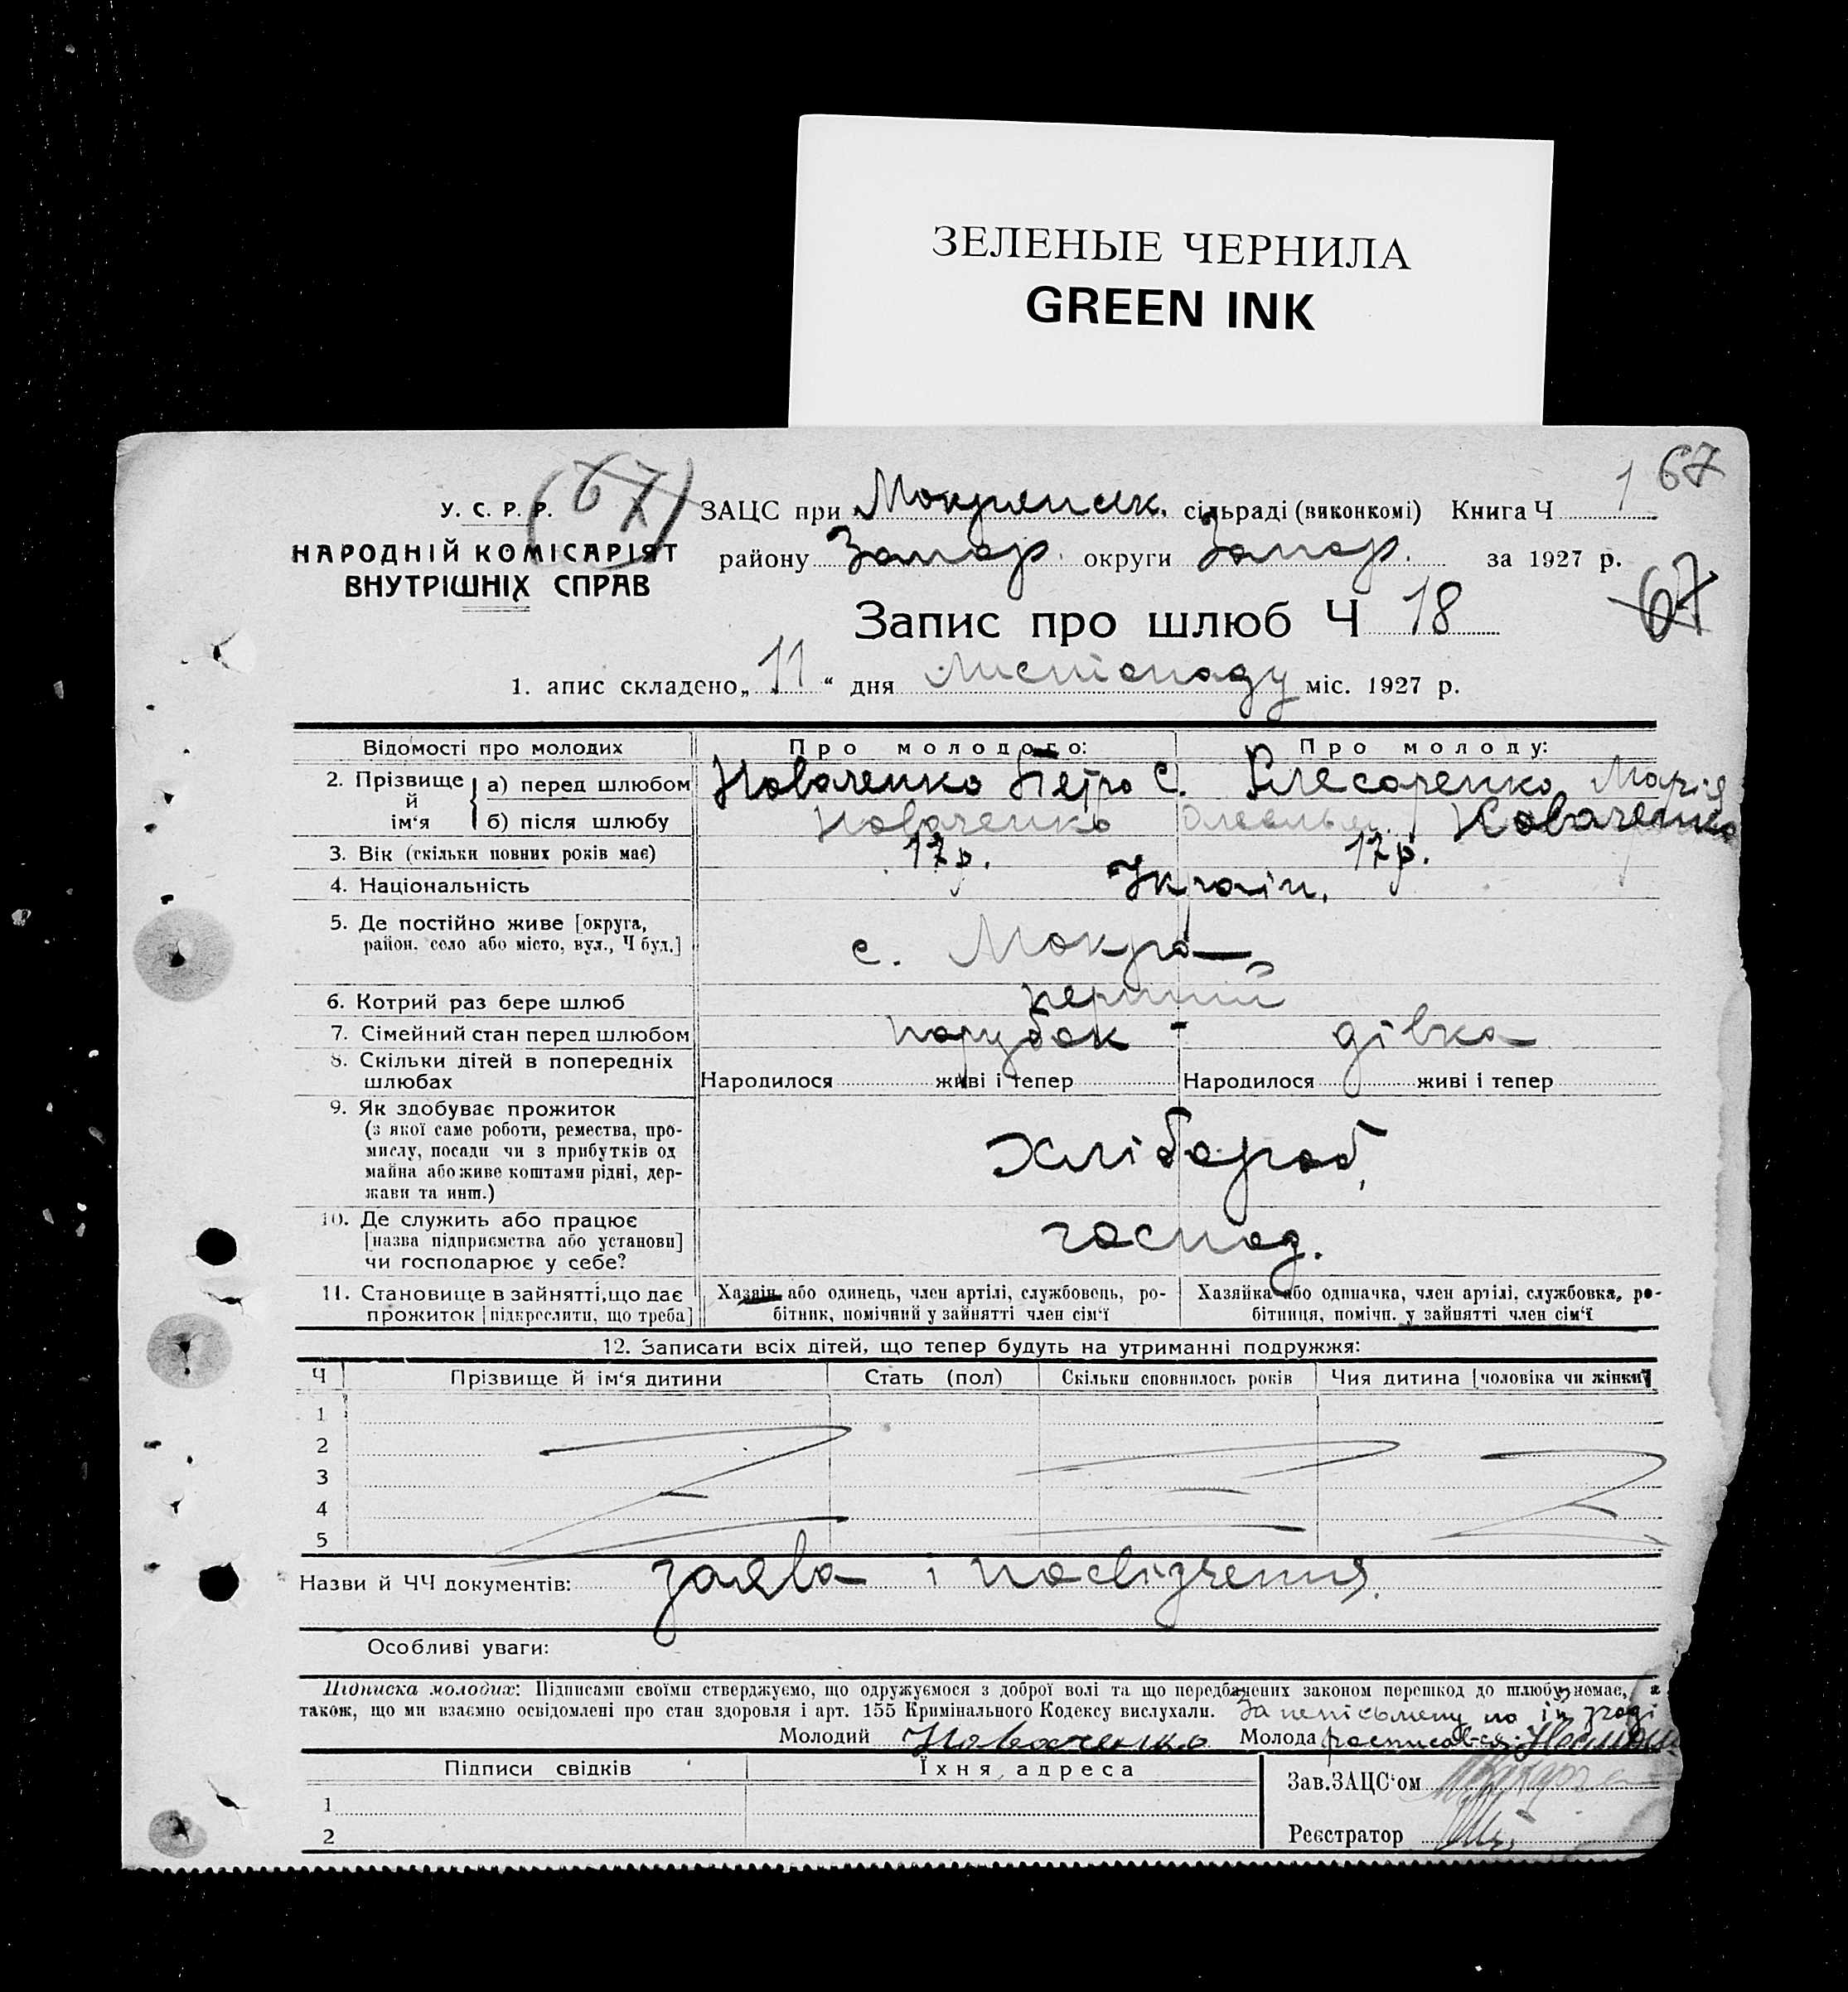 ЗЕЛЕНЫЕ ЧЕРНИЛА
GREEN INK
1 67
(67)
У. С. Р. Р.
НАРОДНІЙ КОМІСАРІЯТ
ВНУТРІШНІХ СПРАВ
ЗАЦС при Мокрянськ. сільраді (виконкомі) Книга Ч
району Запор. округи Запор. за 1927 р.
67
Запис про шлюб Ч 18
1. апис складено „ 11 “ дня листопаду міс. 1927 р.
Відомості про молодих Про молодого: Про молоду:
2. Прізвище й ім‘я а) перед шлюбом Коваченко Петро С. Слесаренко Марія
б) після шлюбу Коваченко Коваченко
3. Вік (скільки повних років має) 17 р. 17 р.
4. Національність Україн.
5. Де постійно живе [округа,
район, село або місто, вул., Ч буд.] с. Мокра
6. Котрий раз бере шлюб перший
7. Сімейний стан перед шлюбом парубок - дівка
8. Скільки дітей в попередніх
шлюбах Народилося живі і тепер Народилося живі і тепер
9. Як здобуває прожиток
(з якої саме роботи, ремества, про-
мислу, посади чи з прибутків од
майна або живе коштами рідні, дер-
жави та инш.) хлібороб,
10. Де служить або працює
[назва підприємства або установи]
чи господарює у себе? господ.
11. Становище в зайнятті, що дає
прожиток [підкреслити, що треба]
Хазяїн або одинець, член артілі, службовець, ро-
бітник, помічний у зайнятті член сім‘ї
Хазяйка або одиначка, член артілі, службовка, ро-
бітниця, помічн. у зайнятті член сім‘ї
12. Записати всіх дітей, що тепер будуть на утриманні подружжя:
Ч Прізвище й ім‘я дитини Стать (пол) Скільки сповнилось років Чия дитина [чоловіка чи жінки]
1
2
3
4
5
Назви й ЧЧ документів: заява і посвідчення.
Особливі уваги:
Підписка молодих: Підписами своїми стверджуємо, що одружуємося з доброї волі та що передбачених законом перешкод до шлюбу немає, а
також, що ми взаємно освідомлені про стан здоровля і арт. 155 Кримінального Кодексу вислухали. За неписьмену по їх згоді
Молодий Коваченко Молода росписався
Підписи свідків Їхня адреса
1
2
Зав. ЗАЦС‘ом
Реєстратор